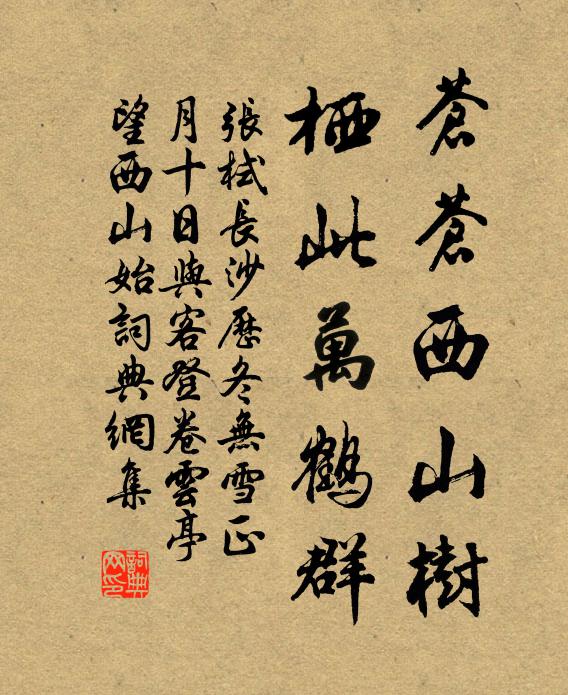 蒼蒼西山樹
栖此萬鶴群
張栻長沙歷冬無雪正
月十日與客登卷雲亭
望西山始詞典網集
詞典
网印